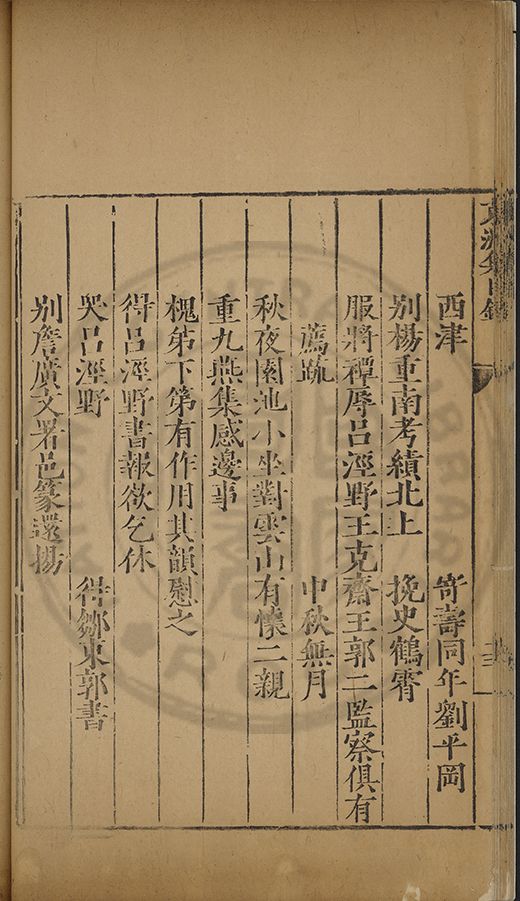 西津　寄壽同年劉平岡
別楊重南考績北上　挽史鶴霄
服將禫辱呂涇野王克齋王郭二監察俱有
薦疏　中秋無月
秋夜園池小坐對雲山有懷二親
重九燕集感邊事
槐第下第有作用其韻慰之
得呂涇野書報欲乞休
哭呂涇野　得鄒東郭書
別詹廣文署邑篆還揚